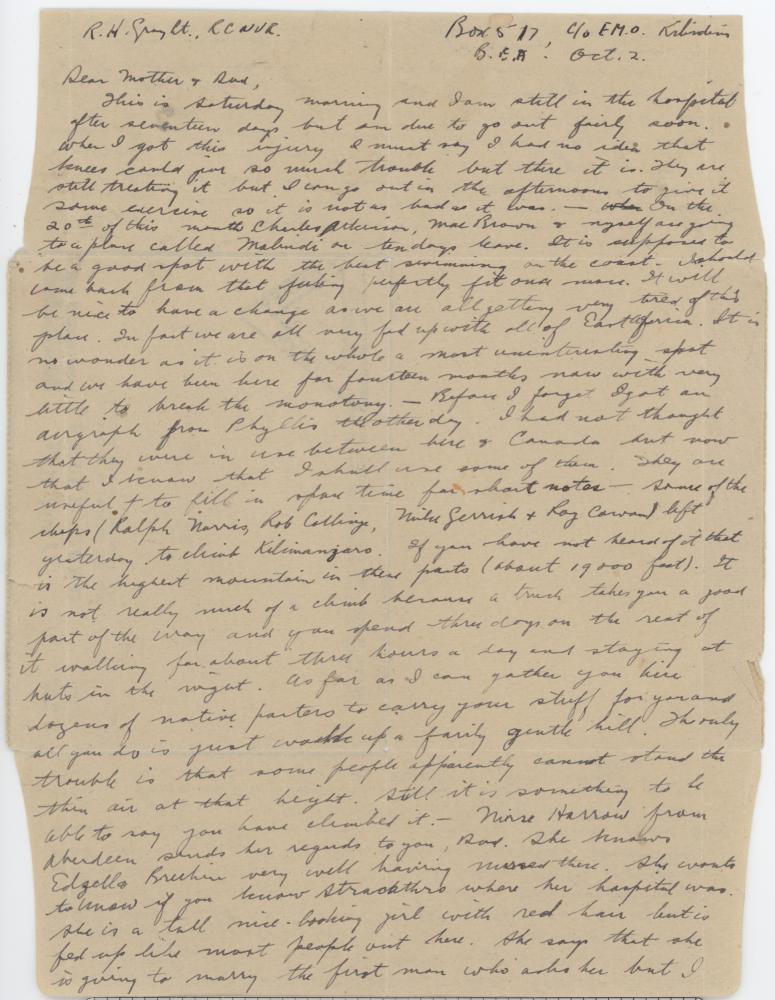 R.H. Gray Lt., RCNVR. Box 517, C/o F.M.O. Kilindini
B.E.A. Oct. 2.
Dear Mother & Dad,
This is Saturday morning and I am still in the hospital
after seventeen days but am due to go out fairly soon.
When I got this injury I must say I had no idea that
knees could give so much trouble but there it is. They are
still treating it but I can go out in the afternoons to give it
some exercise so it is not as bad as it was. — On the
20th of this month Charles Atkinson, Mac Brown & myself are going
to a place called Malindi on ten days leave. It is supposed to
be a good spot with the best swimming on the coast. I should
come back from that feeling perfectly fit once more. It will
be nice to have a change as we are all getting very tired of this
place. In fact we are all very fed up with all of East Africa. It is
no wonder as it is on the whole a most uninteresting spot
and we have been here for fourteen months now with very
little to break the monotony. — Before I forget I got an
airgraph from Phyllis the other day. I had not thought
that they were in use between here & Canada but now
that I know that I shall use some of them. They are
useful to fill in spare time for short notes — Some of the
chaps (Ralph Norris, Rob Collinge, Mike Gerrish & Roy Cowan) left
yesterday to climb Kilimanjaro. If you have not heard of it that
is the highest mountain in these parts (about 19000 feet). It
is not really much of a climb because a truck takes you a good
part of the way and you spend three days on the rest of
it walking for about three hours a day and staying at
huts in the night. As far as I can gather you hire
dozens of native porters to carry your stuff for you and
all you do is just walk up a fairly gentle hill. The only
trouble is that some people apparently cannot stand the
thin air at that height. Still it is something to be
able to say you have climbed it. — Nurse Harrow from
Aberdeen sends her regards to you, Dad. She knows
Edzell & Brechin very well having nursed there. She wants
to know if you know Stracathro where her hospital was.
She is a tall nice-looking girl with red hair but is
fed up like most people out here. She says that she
is going to marry the first man who asks her but I